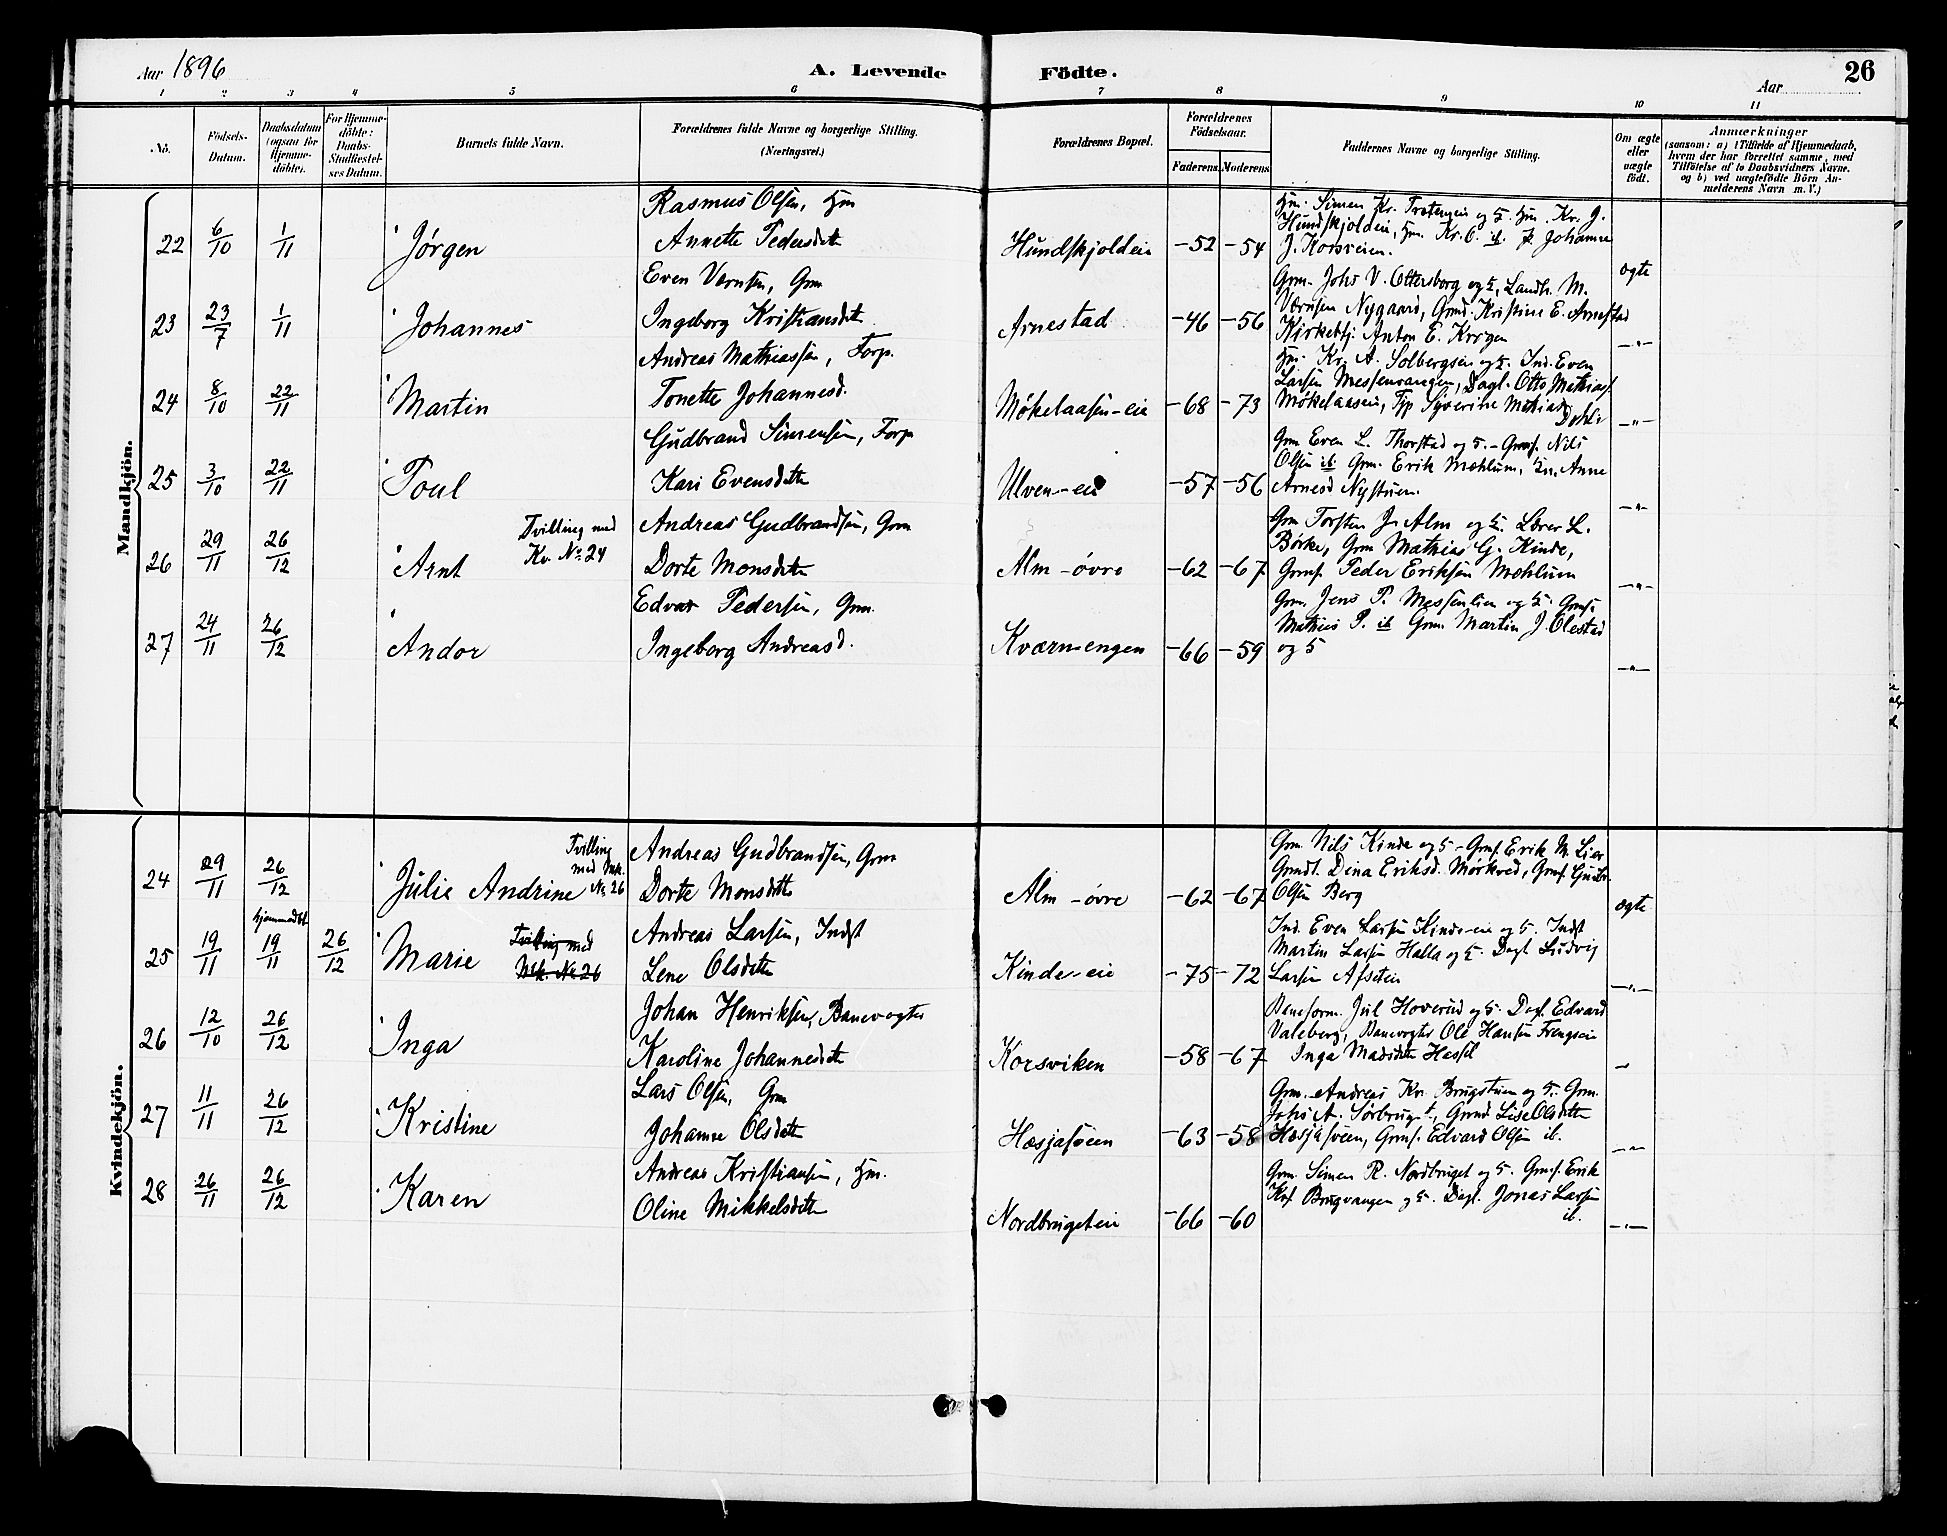 Aar 1896
A. Levende Födte.
Aar
26
1 2 3 4 5 6 7 8 9 10 11
No.
Födsels-Datum.
Daabsdatum (ogsaa for Hjemme-döbte).
For Hjemme-döbte: Daabs-Stadfæstel-ses Datum.
Barnets fulde Navn.
Forældrenes fulde Navne og borgerlige Stilling.
(Næringsvei.)
Forældrenes Bopæl.
Forældrenes Födselsaar.
Faderens. Moderens.
Faddernes Navne og borgerlige Stilling.
Om ægte eller uægte födt.
Anmærkninger
(saasom: a) i Tilfælde af Hjemmedaab,
hvem der har forrettet samme, med
Tilföielse af to Daabsvidners Navne.
og b) ved uægtefödte Börn An-
melderens Navn m. V.)
Mandkjön.
22 6/10 1/11 Jørgen
Rasmus Olsen, Hm
Annette Pedersdtt
Hundskjoldeie -52 -54
Hm. Simen Kr. Troterseie og 5. Hm. Kr. J.
Hundskjoldeie, Hm. Kr. O. ib. P. Johanne
J. Korsveien.
ægte
23 23/7 1/11 Johannes
Even Værnsen, Grm
Ingeborg Kristiansdtt
Arnestad -46 -56
Grm. Johs V. Ottersborg og 5, Landh. M.
Værnsen Nygaard, Grmd. Kristine E. Arnestad
Kirkebtj. Anton E. Krogen
-"-
24 8/10 22/11 Martin
Andreas Mathiassen, Forp.
Tonette Johannesd.
Møkelaasen-eie -68 -73
Hm. Kr. A. Solbergseie og 5. Ind. Even
Larsen Messenvangen, Dagl. Otto Mathiass
Møkelaaseie, Tjp Syverine Mathiasd
Dohli
-"-
25 3/10 22/11 Poul
Gudbrand Simensen, Forp
Kari Evensdatter
Ulven-eie -57 -56
Grm Even L. Thorstad og 5. - Grmf. Nils
Olsen ib. Grm. Erik Mæhlum, En. Anne
Arnesd Nystuen.
-"-
26 29/11 26/12 Arnt
Tvilling med
Kv. No. 24
Andreas Gudbrandsen, Grm
Dorte Monsdatter
Alm -øvre -62 -67
Grm Torsten J. Alm og 5. Lærer L.
Børke, Grm Mathias G. Kinde,
Grmf. Peder Eriksen Mæhlum
-"-
27 24/11 26/12 Andor
Edvar Pedersen, Grm.
Ingeborg Andreasd.
Kværnengen -66 -59
Grm. Jens P. Messenlien og 5. Grmf.
Mathias P. ib Grm. Martin J. Olestad
og 5
-"-
Kvindekjön.
24 29/11 26/12 Julie Andrine
Tvilling
med Mk.
No. 26
Andreas Gudbrandsen, Grm
Dorte Monsdatter
Alm -øvre -62 -67
Grm. Nils Kinde og 5 - Grmf. Erik M. Lier
Grmdt. Dina Eriksd. Mørkved, Grmf. Gudbr.
Olsen Berg
ægte
25 19/11 hjemmedbt 19/11 26/12 Marie
Tvilling med
Mk. No 26
Andreas Larsen, Indst
Lene Olsdatter
Kinde-eie -75 -72
Ind. Even Larsen Kinde-eie og 5. Indst
Martin Larsen Halla og 5. Dagl Ludvig
Larsen Afseteie
-"-
26 12/10 26/12 Inga
Johan Henriksen, Banevogter
Karoline Johannesdtt
Korsviken -58 -67
Baneform. Jul Hoverud og 5. Dagl. Edvard
Valeberg, Banevogter Ole Hansen Frengseie
Inga Madsdtt Hassel
-"-
27 11/11 26/12 Kristine
Lars Olsen, Grm
Johanne Olsdatter
Hæsjasveen -63 -58
Grm. Andreas Kr. Brugstuen og 5. Grm.
Johs A. Sørbrug t., Grmd. Lise Olsdatter
Hæsjasveen, Grmf. Edvard Olsen ib.
-"-
28 26/11 26/12 Karen
Andreas Kristiansen, Hm.
Oline Mikkelsdatter
Nordbrugeteie -66 -60
Grm. Simen R. Nordbruget og 5. Grmf. Erik
Krf Brugvangen og 5. Dagl. Jonas Larsen
ib.
-"-